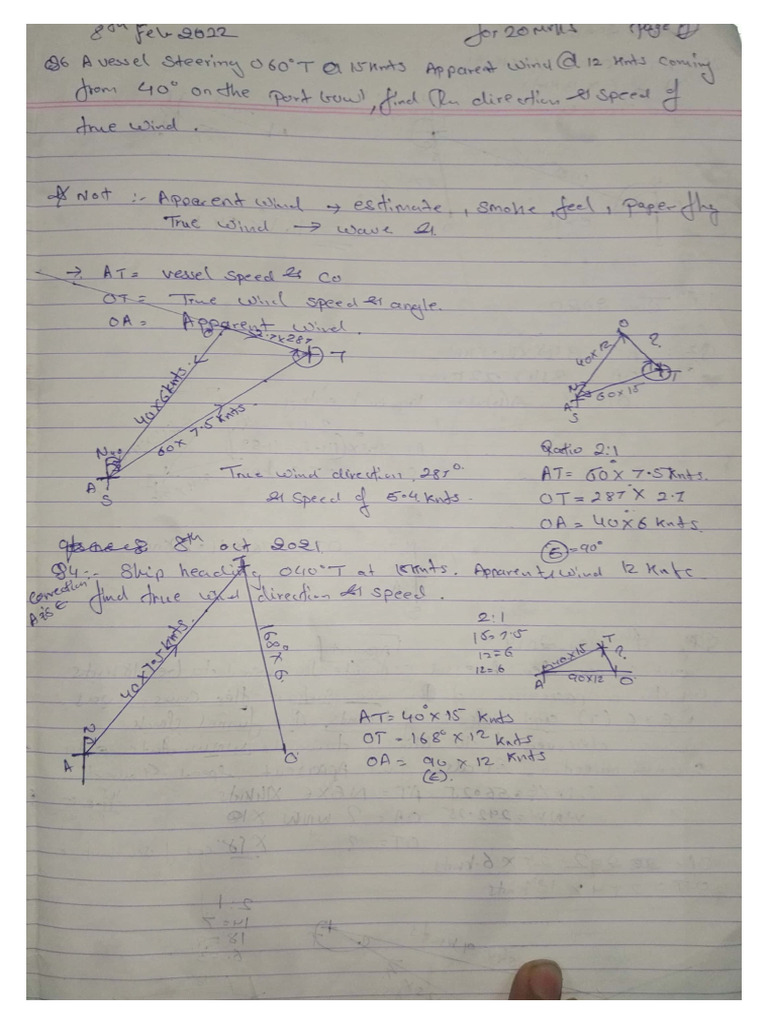 8th Feb 2022 for 20 Mrks (Page 1)
Q6 A vessel steering 060°T @ 15 knts Apparent wind @ 12 knts coming
from 40° on the port bow, find the direction & speed of
true wind.
Not :- Apparent wind → estimate, smoke, feel, paper flag
True wind → wave &
→ AT = vessel speed & Co
OT = True wind speed & angle.
OA = Apparent wind.
2.7 x 287
T
40 x 6 knts
60 x 7.5 knts.
N
A
S
O
40 x 12
?
N
T
60 x 15
A
S
Ratio 2:1
True wind direction, 287°
AT = 60° x 7.5 knts.
& speed of 5.4 knts.
OT = 287° x 2.7
OA = 40° x 6 knts
E = 90°
8th oct 2021
Q4 :- Ship heading 040°T at 15 knts. Apparent wind 12 knts
correction
A is E
find true wind direction & speed.
T
40 x 7.5 knts.
168° x 6
A
O
2:1
15 = 7.5
12 = 6
12 = 6
T
40 x 15
?
A
90 x 12
O
AT = 40° x 15 knts
OT = 168° x 12 knts
OA = 90 x 12 knts
(E).